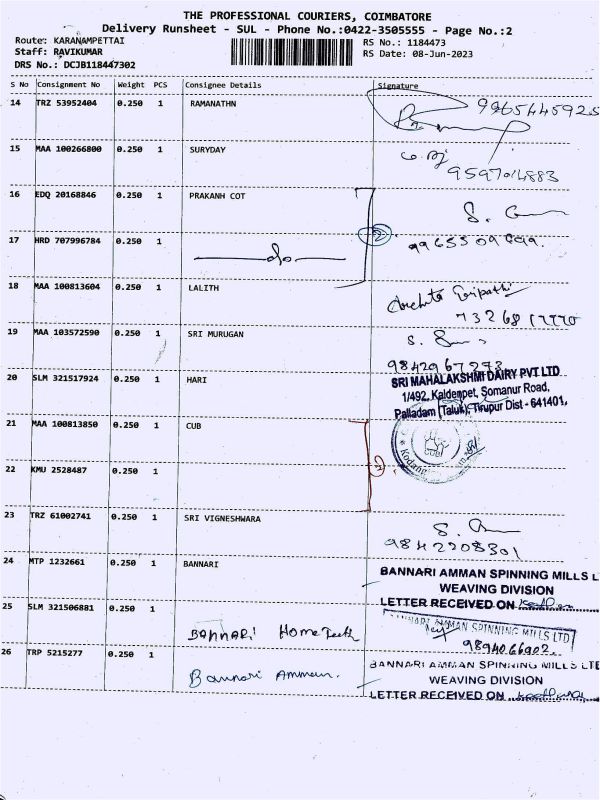 THE PROFESSIONAL COURIERS, COIMBATORE
Delivery Runsheet - SUL - Phone No.:0422-3505555 - Page No.:2
Route: KARANAMPETTAI
Staff: RAVIKUMAR
DRS No.: DCJB118447302
RS No.: 1184473
RS Date: 08-Jun-2023
S No Consignment No Weight PCS Consignee Details Signature
14 TRZ 53952404 0.250 1 RAMANATHN
15 MAA 100266800 0.250 1 SURYDAY
16 EDQ 20168846 0.250 1 PRAKANH COT
17 HRD 707996784 0.250 1 do
18 MAA 100813604 0.250 1 LALITH
19 MAA 103572590 0.250 1 SRI MURUGAN
9842967273
20 SLM 321517924 0.250 1 HARI
SRI MAHALAKSHMI DAIRY PVT LTD
1/492, Kaldempet, Somanur Road,
Palladam (Taluk), Tirupur Dist - 641401,
21 MAA 100813850 0.250 1 CUB
22 KMU 2528487 0.250 1
23 TRZ 61002741 0.250 1 SRI VIGNESHWARA
9842208301
24 MTP 1232661 0.250 1 BANNARI
BANNARI AMMAN SPINNING MILLS L
WEAVING DIVISION
LETTER RECEIVED ON
25 SLM 321506881 0.250 1 BANNARI Home
BANNARI AMMAN SPINNING MILLS LTD
9894066902.
26 TRP 5215277 0.250 1 Bannari Amman.
BANNARI AMMAN SPINNING MILLS LTD
WEAVING DIVISION
LETTER RECEIVED ON